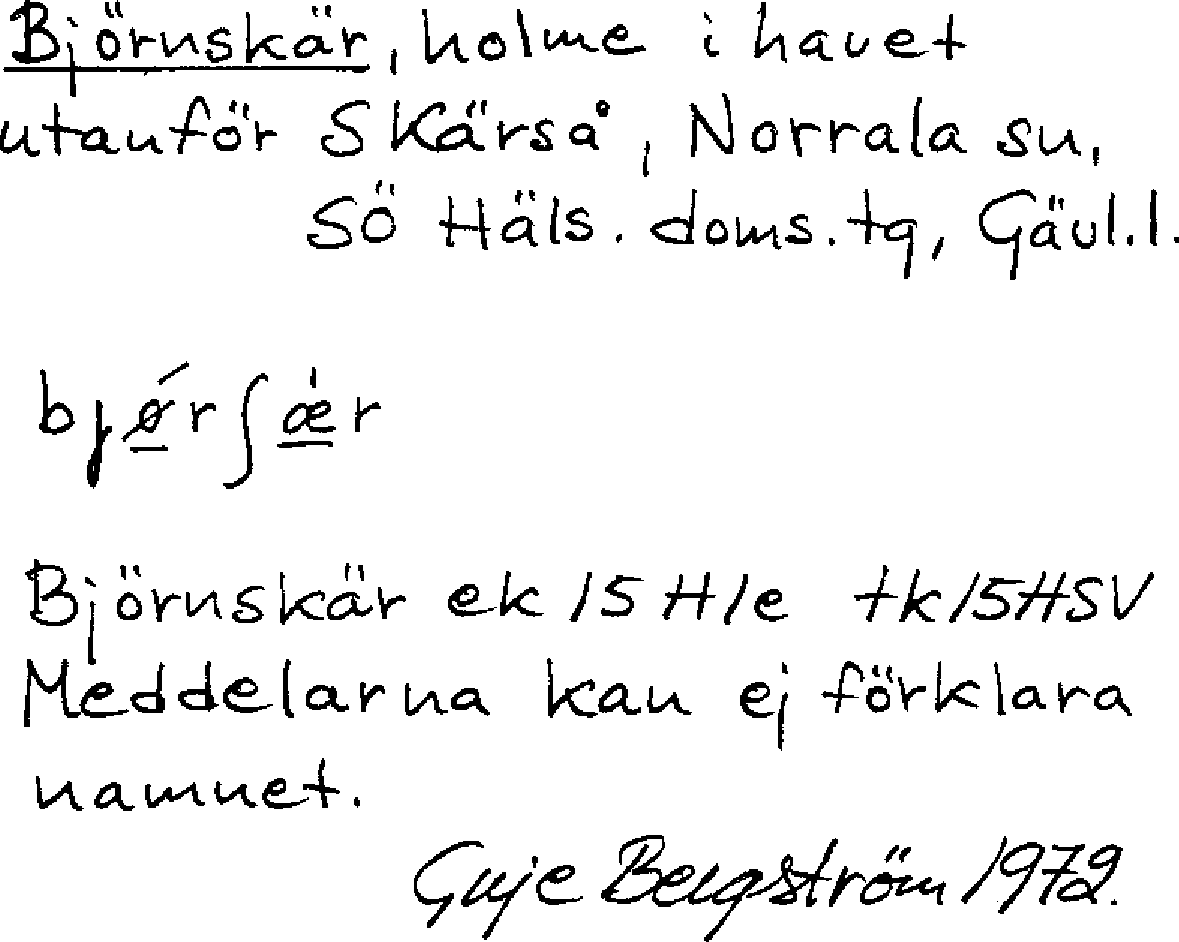 Björnskär, holme i havet
utanför Skärså, Norrala sn,
Sö Häls. doms. tg, Gävl.l.
bjǿrʃǽr
Björnskär ek 15H1e tk15HSV
Meddelarna kan ej förklara
namnet.
Guje Bergström 1972.